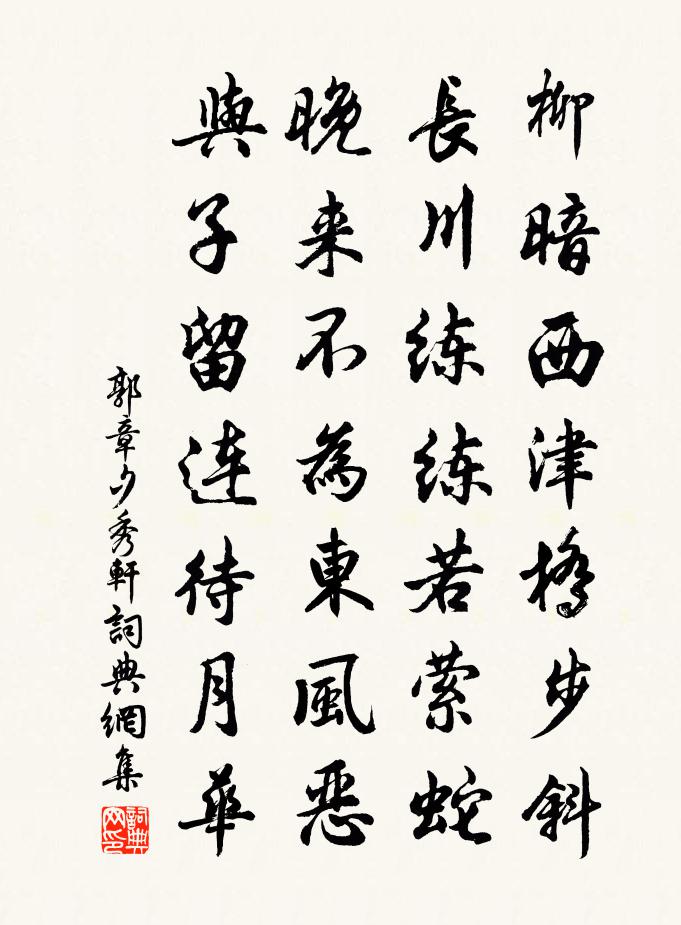 柳暗西津橋步斜
長川练练若萦蛇
晚来不為東風恶
與子留连待月華
郭章夕秀軒詞典網集
詞典网印